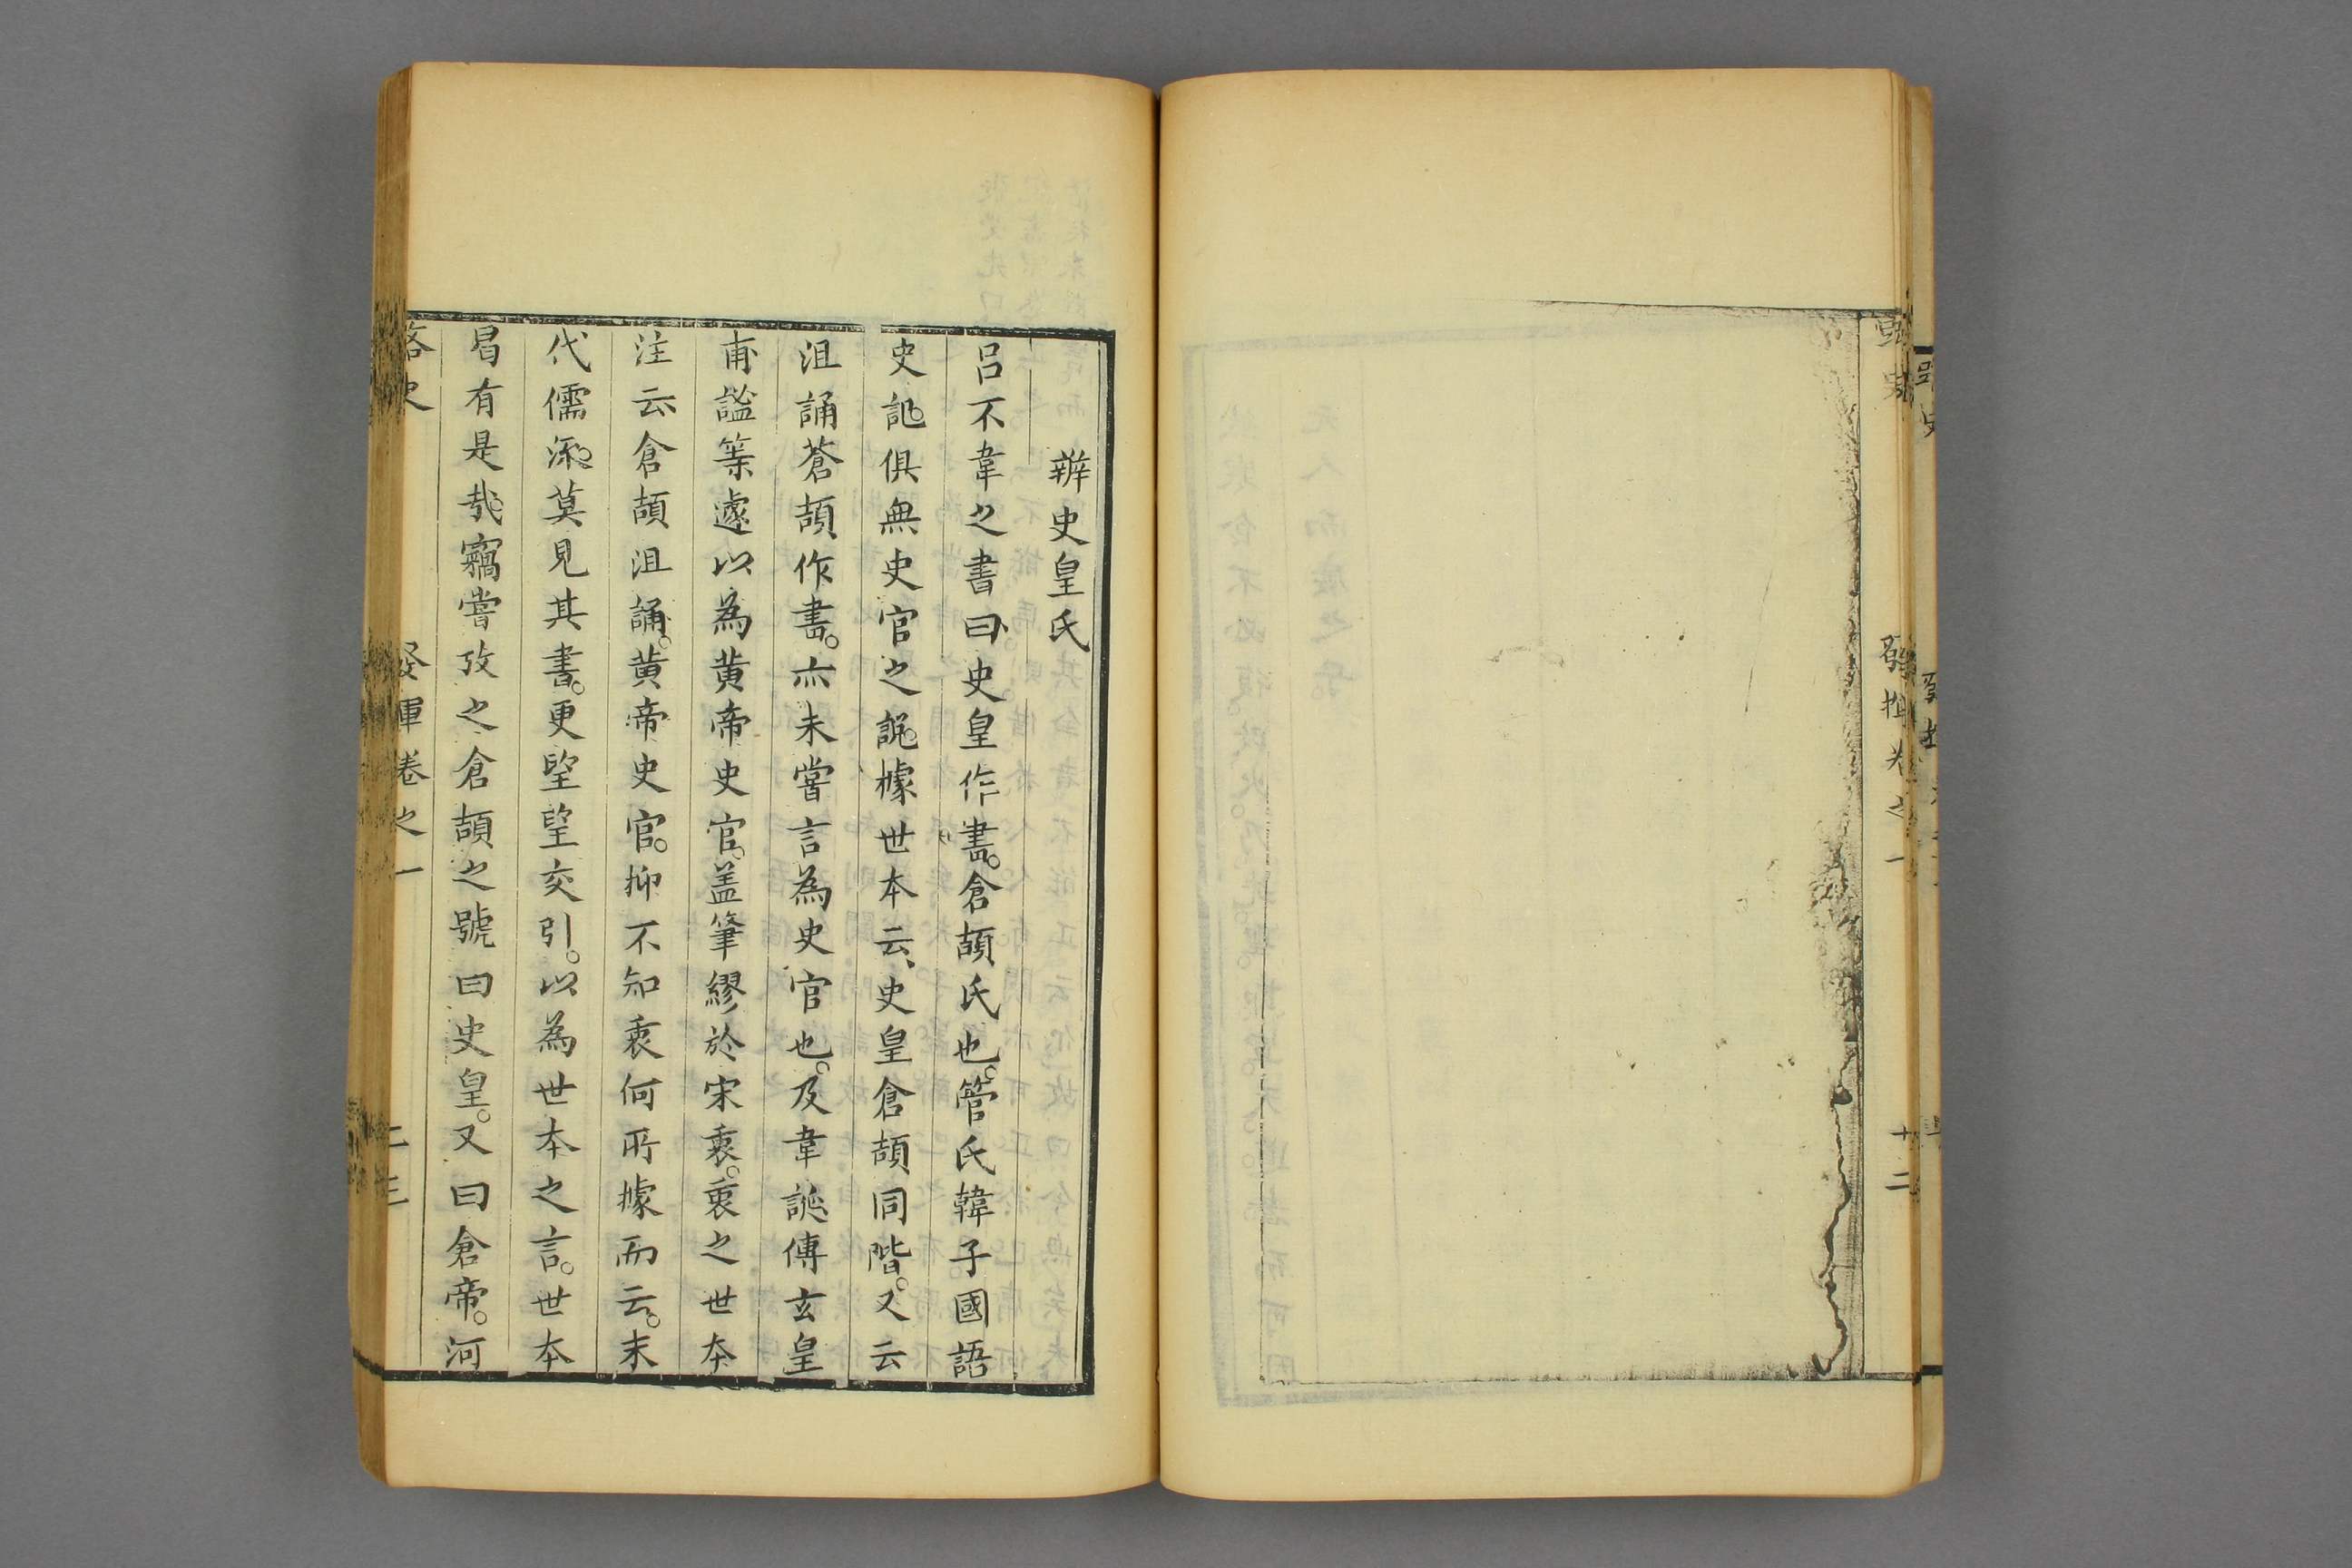 發揮卷之一
十二
辨史皇氏
吕不韋之書曰史皇作書。倉頡氏也。管氏韓子國語
史記俱無史官之說據世本云、史皇倉頡同階。又云
沮誦蒼頡作書。亦未嘗言為史官也。及韋誕傅玄皇
甫謐等遽以為黃帝史官。盖筆繆於宋衷。衷之世本
注云倉頡沮誦。黃帝史官。抑不知衷何所據而云。末
代儒流莫見其書。更望望交引。以為世本之言。世本
曷有是哉竊嘗攷之倉頡之號曰史皇。又曰倉帝。河
路史
發揮卷之一